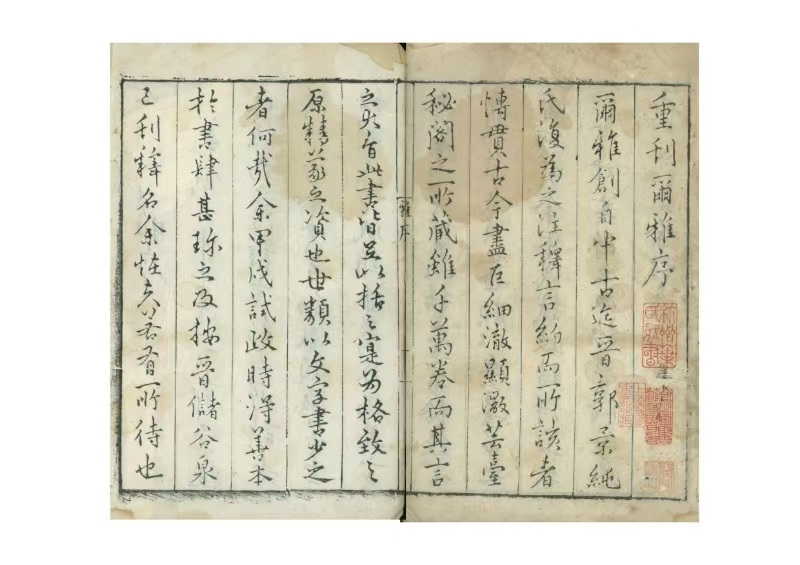 重刊爾雅序
爾雅創自中古迄晉郭景純
氏復為之注釋言約而所該者
博貫古今盡巨細澈顯微芸臺
秘閣之所藏雖千萬卷而其言
之大旨此書皆足以括之寔為格致之
原精義之資也世類以文字書少之
者何哉余甲戌試政時得善本
於書肆甚珍之及按晉儲谷泉
已刊釋名余怪夫若有所待也
雅序